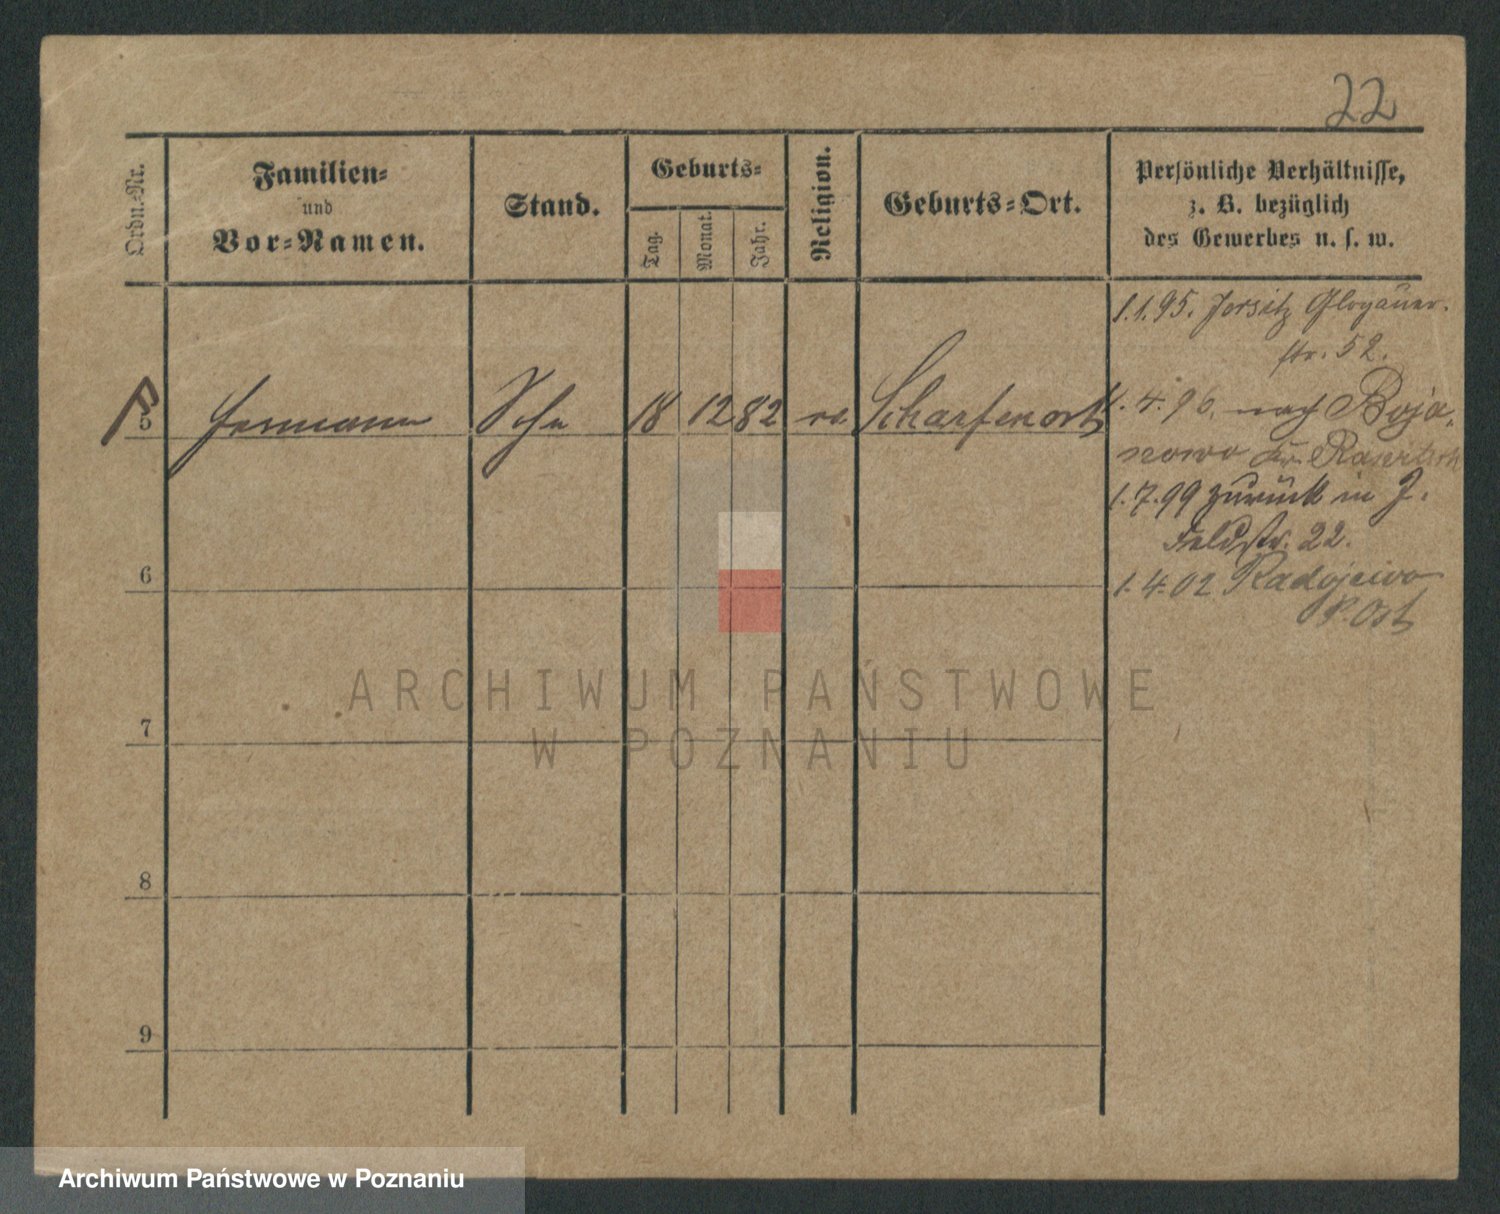 22
Ordn.-Nr.
Familien-
und
Vor-Namen.
Stand.
Geburts-
Tag.
Monat.
Jahr.
Religion.
Geburts-Ort.
Persönliche Verhältnisse,
z. B. bezüglich
des Gewerbes u. s. w.
1.1.95. Jersitz Glogauer-
str. 52.
5 Hermann Sohn 18 12 82 Scharfenort 1.4.96. nach Boja-
nowo Kr. Rawitsch
1.7.99 zurück in J.
Feldstr. 22.
6
1.4.02 Radojewo
P. Ost
7
8
9
ARCHIWUM PAŃSTWOWE
W POZNANIU
Archiwum Państwowe w Poznaniu